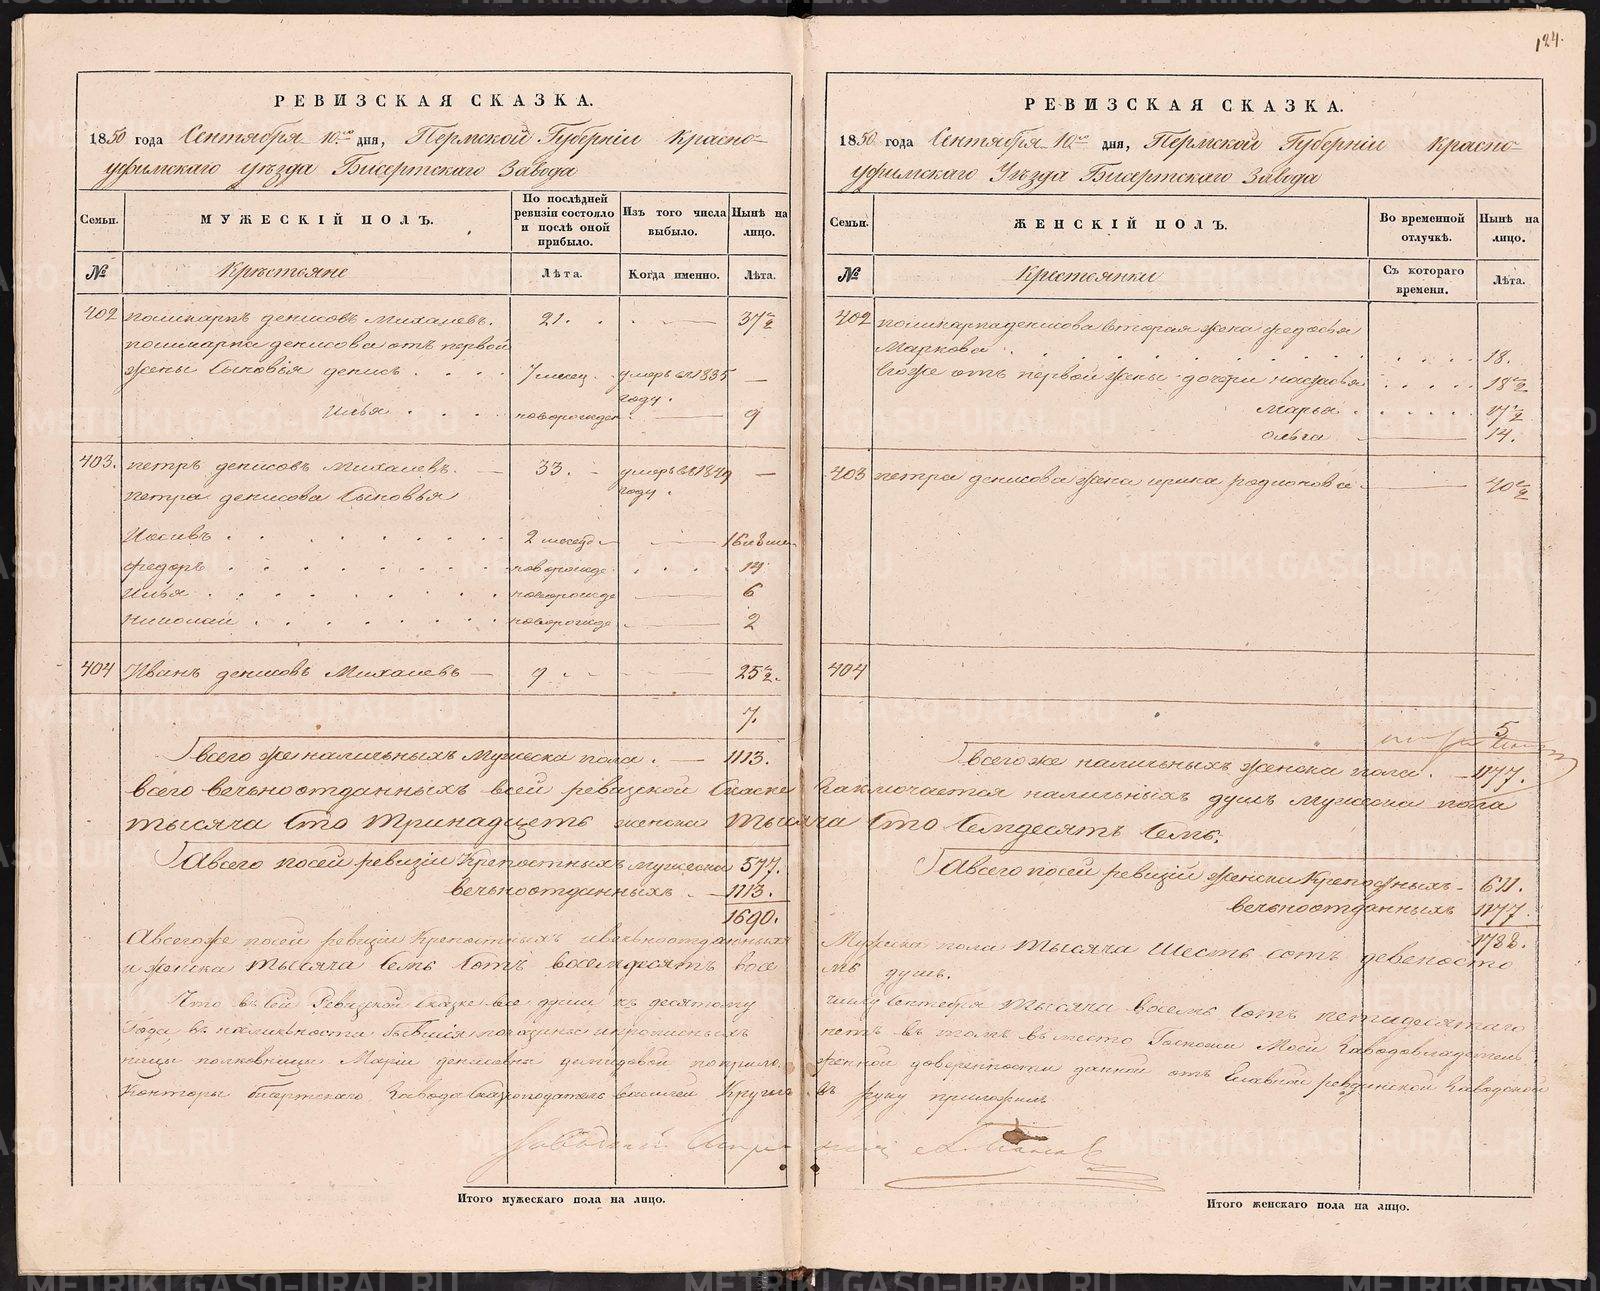 124.
РЕВИЗСКАЯ СКАЗКА.
1850 года Сентября 10го дня, Пермской Губерніи Красно-
уфимскаго уѣзда Бисертскаго Завода
Семьи.
МУЖЕСКІЙ ПОЛЪ.
По послѣдней ревизіи состояло и послѣ оной прибыло.
Изъ того числа выбыло.
Нынѣ на лицо.
№
Крестьяне
Лѣта.
Когда именно.
Лѣта.
402 поликарпъ денисовъ Михалевъ. 21. 37 ½
поликарпа денисова отъ первой
жены Сыновья денисъ 7 месец. умеръ въ 1835 году. —
Илья новорожден 9
403. петръ денисовъ Михалевъ. 33. умеръ въ 1849 году. —
петра денисова Сыновья
Иосивъ 2 месец
федоръ новорожде 14
Илья новорожде 6
Николай новорожде 2
404 Иванъ денисовъ Михалевъ 9 25 ½.
7.
Всего же наличныхъ Мужеска пола. 1113.
РЕВИЗСКАЯ СКАЗКА.
1850 года Сентября 10го дня, Пермской Губерніи Красно-
уфимскаго Уѣзда Бисертскаго Завода
Семьи.
ЖЕНСКІЙ ПОЛЪ.
Во временной отлучкѣ.
Нынѣ на лицо.
№
Крестьянки
Съ котораго времени.
Лѣта.
402 поликарпа денисова вторая жена федосья
Маркова 18.
Его же отъ первой жены дочери настасья 18 ½
Марья 17 ½
Ольга 14.
403 петра денисова жена ирина родионова 40 ½
404
5
Всего же наличныхъ женска пола. 1177.
Всего вечноотданныхъ всей ревизской Сказке Заключается наличныхъ душъ мужеска пола
тысяча Сто тринадцеть женска тысяча Сто Семдесятъ Семь.
А всего посей ревизіи Крепостныхъ мужеска 577.
вечноотданныхъ 1113.
1690.
А всего посей ревизіи женска Крепостныхъ 611.
вечноотданныхъ 1177.
1788.
А всего же посей ревизіи Крепостныхъ и вечноотданныхъ Мужеска пола тысяча Шесть сотъ девеносто
и женска тысяча Семь Сотъ восемдесятъ восемь душъ.
Что въ сей Ревизской Сказке все души къ десятому числу Сентября тысяча восемь Сотъ петидесятаго
года въ наличности бывшія показаны и прописныхъ нетъ въ томъ вместо Госпожи Моей Заводовладетель
ницы полковницы Маріи денисовны демидовой по приложенной доверенности данной отъ Главной ревдинской Заводской
Конторы бисертскаго Завода Сказкоподатель василей руку приложилъ
Итого мужескаго пола на лицо.
Итого женскаго пола на лицо.
METRIKI.GASO-URAL.RU